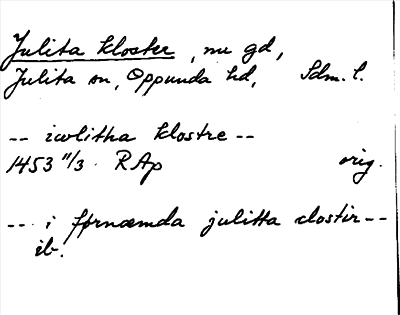 Julita kloster, nu gd,
Julita sn, Oppunda hd, Sdm. l.
-- iwlitha klostre --
1453 11/3 RAp orig.
-- i førnæmda julitta clostir --
ib.